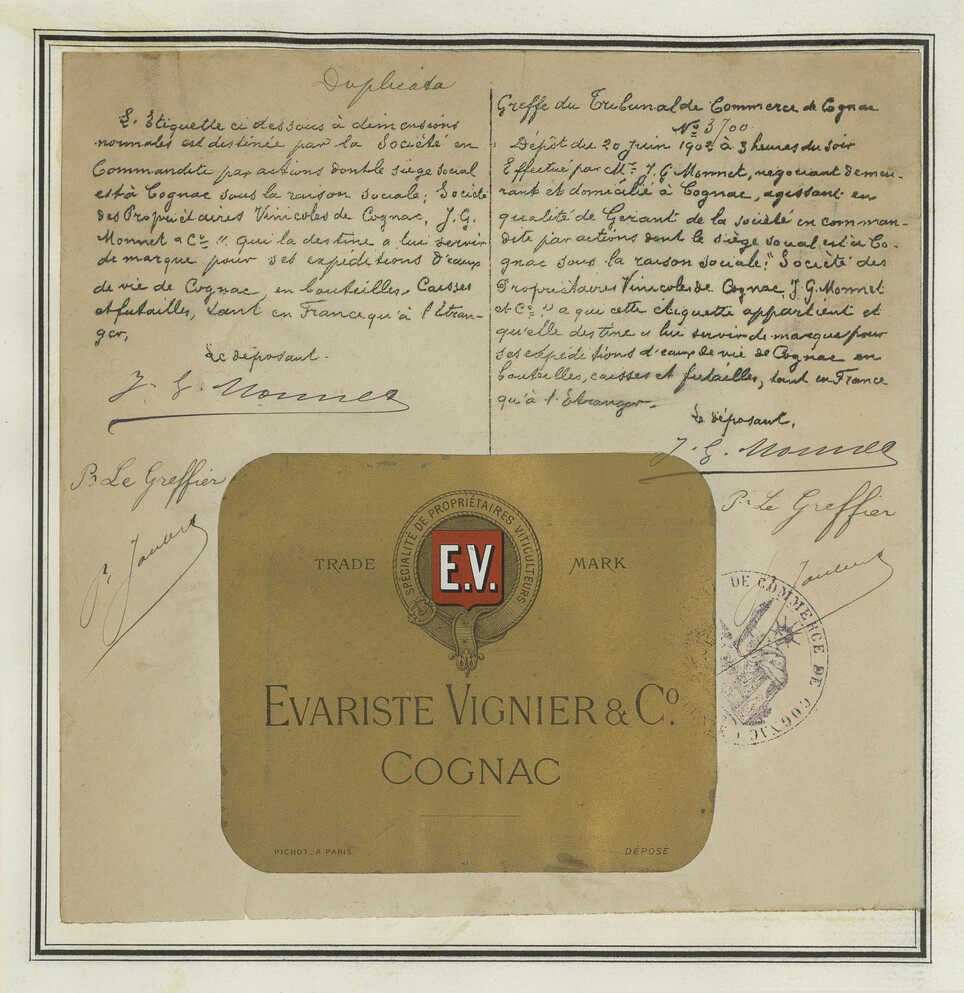 Duplicata
L'Etiquette ci dessous à dimensions
normales est destinée par la Société en
Commandite par actions dont le siège social
est à Cognac sous la raison sociale; Société
des Propriétaires Vinicoles de Cognac, J.G.
Monnet & Co. " qui la destine a lui servir
de marque pour ses expeditions d'eaux
de vie de Cognac, en bouteilles, Caisses
et futailles, tant en France qu'à l'étran-
ger,
Le déposant.
J. G. Monnet
Pr Le Greffier
Greffe du Tribunal de Commerce de Cognac
No 3700
Dépôt du 20 Juin 1902 à 3 heures du soir
Effectué par Mr. J.G. Monnet, négociant demeu-
rant et domicilié à Cognac, agissant en
qualité de Gérant de la société en comman-
dite par actions dont le siège social est à Co-
gnac sous la raison sociale: "Société des
Propriétaires Vinicoles de Cognac, J.G. Monnet
et Co. " a qui cette étiquette appartient et
qu'elle destine a lui servir de marque pour
ses expéditions d'eaux de vie de Cognac en
bouteilles, caisses et futailles, tant en France
qu'à l'Etranger.
Le déposant,
J. G. Monnet
Pr Le Greffier
SPÉCIALITÉ DE PROPRIÉTAIRES VITICULTEURS
TRADE MARK
E.V.
EVARISTE VIGNIER & Co.
COGNAC
PICHOT, A PARIS
DÉPOSÉ
DE COMMERCE DE COGNAC